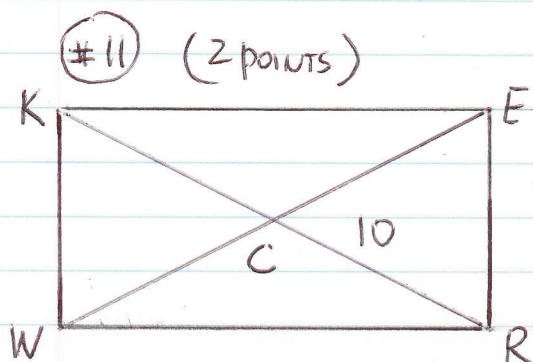 #11 (2 POINTS)
K E
10
C
W R